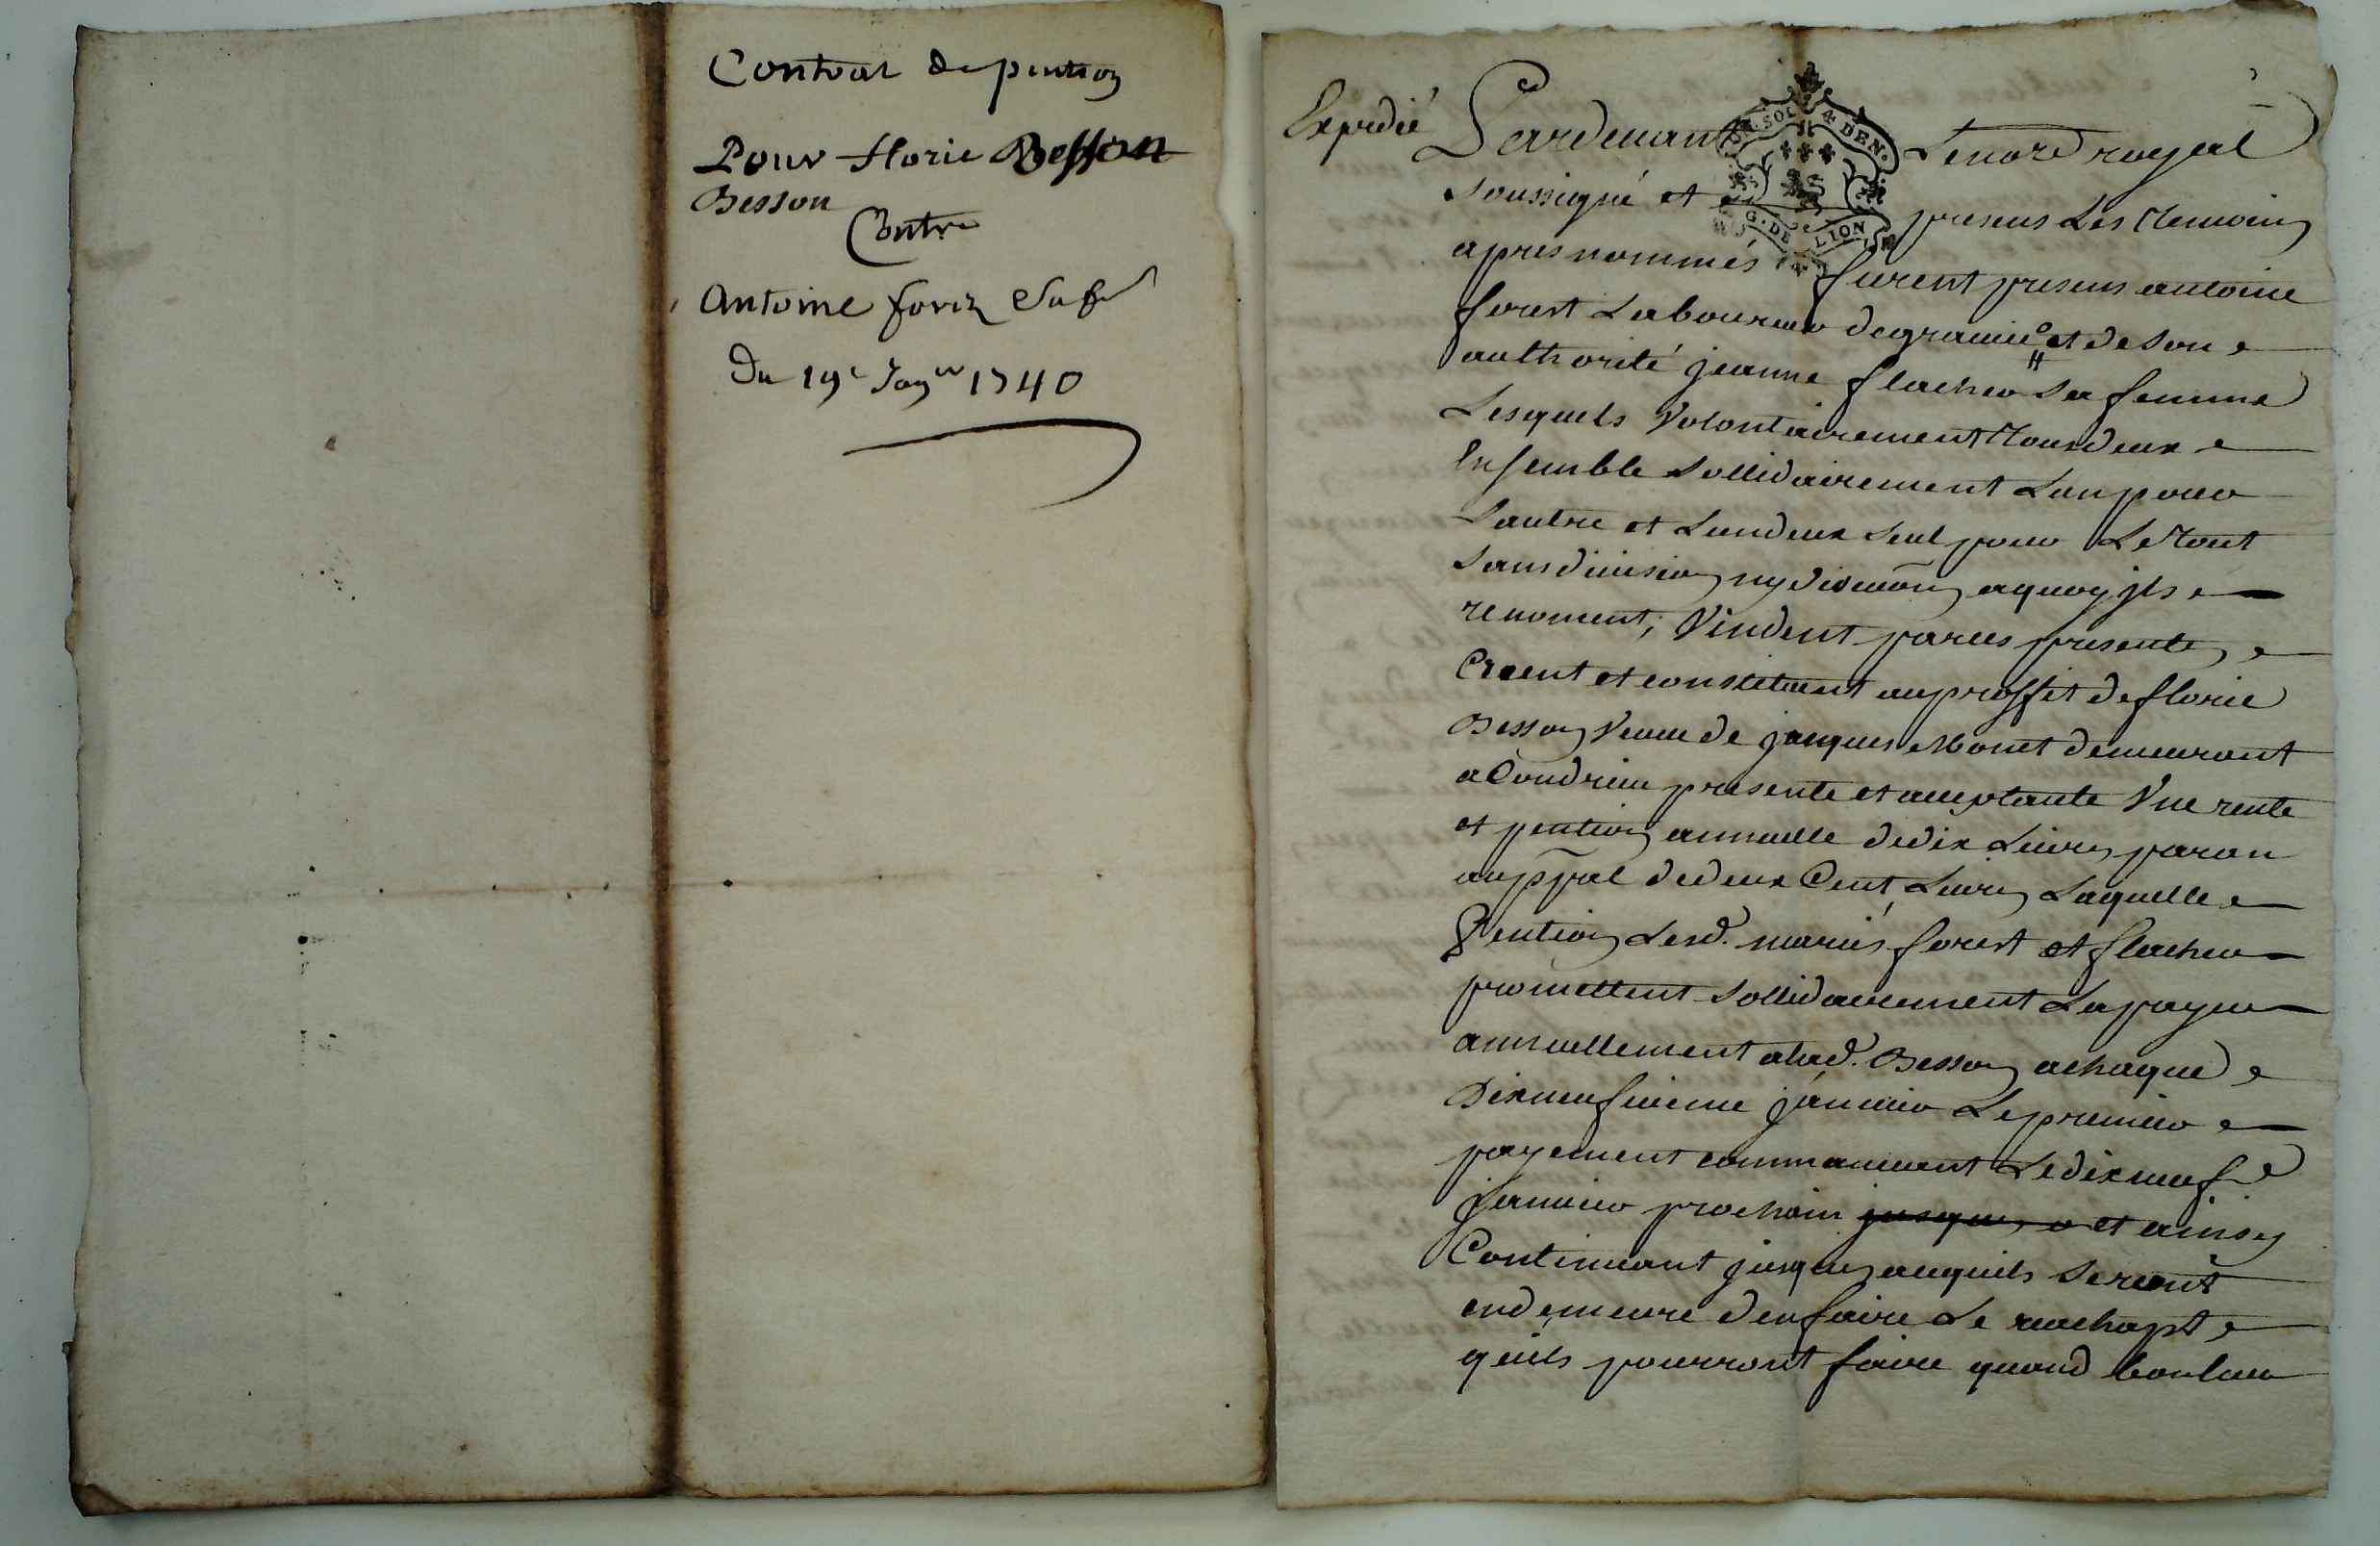 Contrat de pention
Pour Florie Besson
Besson
Contre
Antoine forez Sa fe
Du 19e Janver 1740
Expedié
Pardevant Le no.re royal
UN. SOL 4. DEN.
G. DE LION
soussigné et presens Les temoins
apres nommés furent presens antoine
forest Laboureur et de son
authorité jeanne flacher sa femme
Lesquels Volontairement tous deux
Ensemble sollidairement Lun pour
Lautre et Lun deux seul pour Le tout
sans division ny aquoy jls
renoncent, Vendent par ces presentes
Creent et constituent au proffit de florie
Besson Veuve de jacques demeurant
a Condrieu presente et acceptante Vne rente
et pention annuelle de dix Livres par an
au ppal de deux Cent Livres Laquelle
Pention Lesd. mariés forest et flacher
promettent sollidairement La payer
annuellement a lad. Besson a chaque
Dixneufvieme janvier Le premier
payement commancant Le dixneuf
janvier prochain jusques a et ainsy
Continuant jusques a ce quils seront
en demeure den faire Le rachapt
quils pourront faire quand bon leur